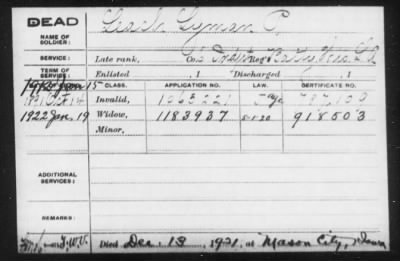 DEAD
NAME OF SOLDIER: Leach, Lyman P.
SERVICE: Late rank, Co. Indpt Reg't Batty, Wis. L A
TERM OF SERVICE: Enlisted , 1 Discharged , 1
DATE OF FILING. CLASS. APPLICATION NO. LAW. CERTIFICATE NO.
Invalid, 1065221
1922 Jan. 19 Widow, 1183937 5-1-20 918503
Minor,
ADDITIONAL SERVICES:
REMARKS:
Died Dec. 13, 1921, at Mason City, Iowa